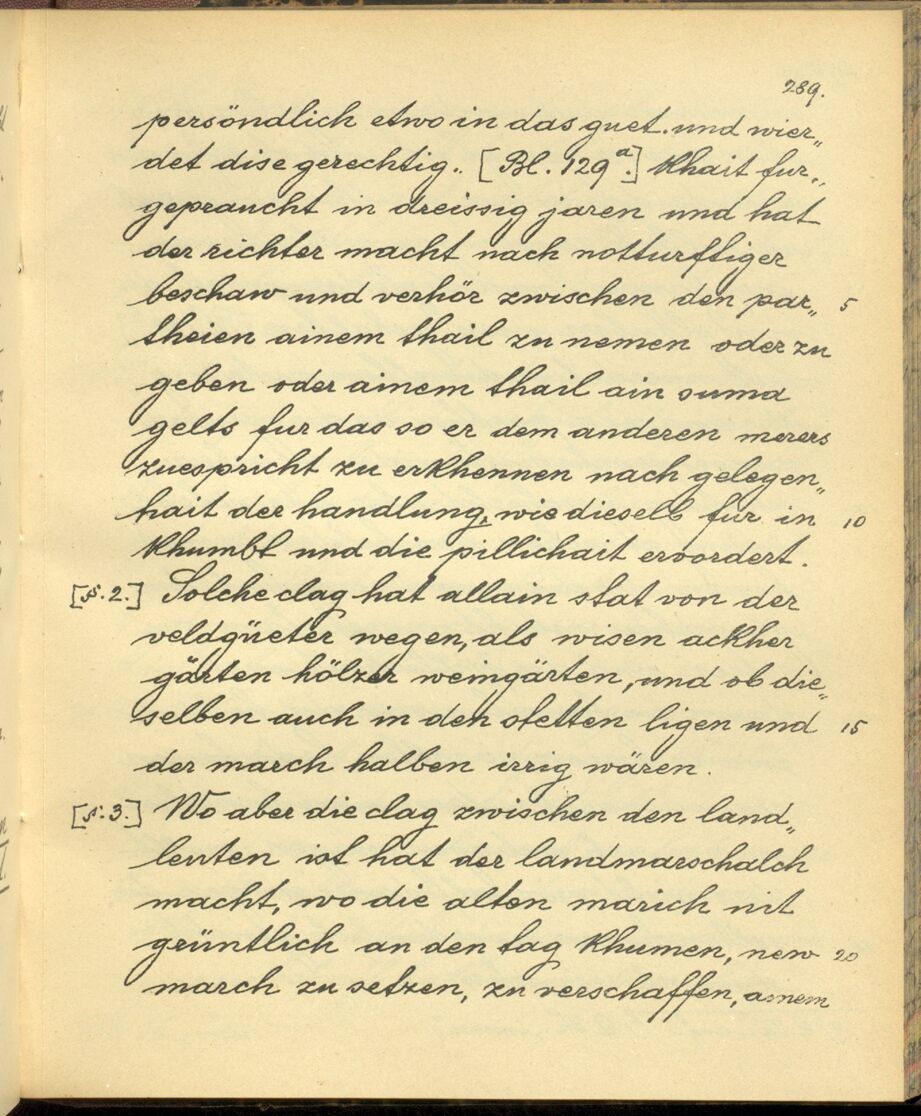 289.
persöndlich etwo in das guet. und wier„
det dise gerechtig.. [Bl. 129ᵃ.] khait fur„
gepraucht in dreissig jaren und hat
der richter macht nach notturfftiger
beschaw und verhör zwischen den par„ 5
theien ainem thail zu nemen oder zu
geben oder ainem thail ain suma
gelts fur das so er dem anderen merers
zuespricht zu erkhennen nach gelegen„
hait der handlung, wie dieselb fur in 10
khumbt und die pillichait ervordert.
[§. 2.] Solche clag hat allain stat von der
veldgüeter wegen, als wisen ackher
gärten hölzer weingärten, und ob die„
selben auch in den stetten ligen und 15
der march halben irrig wären.
[§. 3.] Wo aber die clag zwischen den land„
leuten ist hat der landmarschalch
macht, wo die alten marich nit
grüntlich an den tag khumen, new 20
march zu setzen, zu verschaffen, ainem